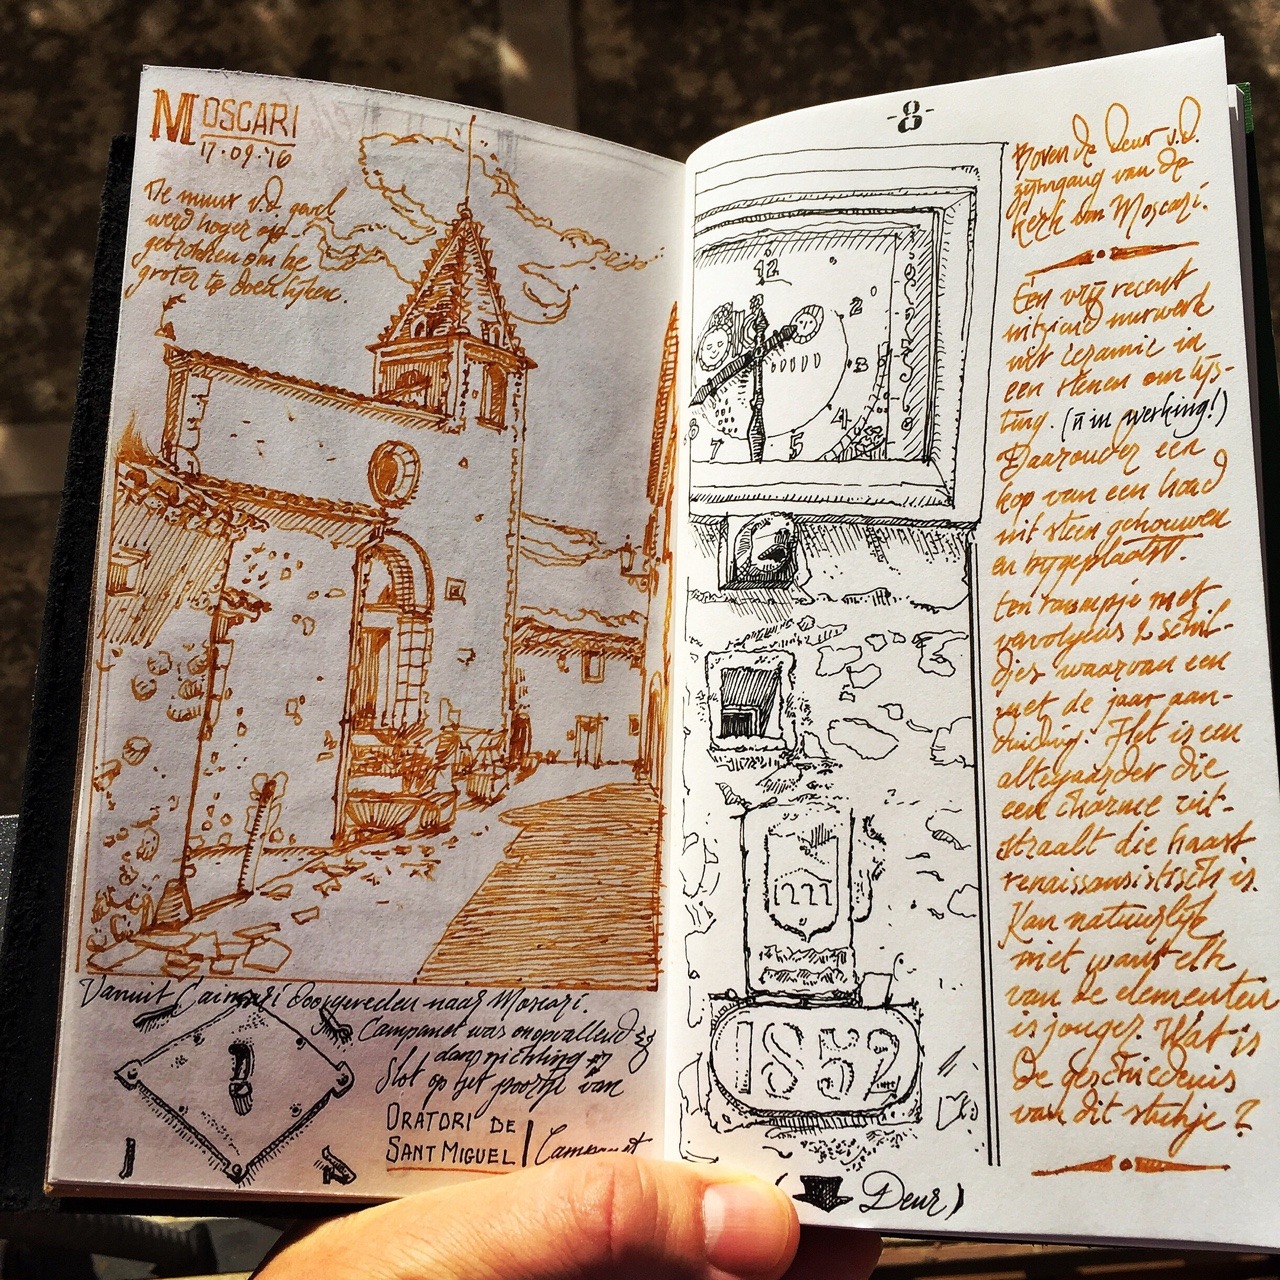 MOSCARI
17·09·'16
De muur v.d. gevel
werd hoger op-
getrokken om he
groter te doen lijken.
Vanuit Caimari doorgereden naar Moscari.
Campanet was onopvallend
Slot op het poortje van
ORATORI DE
SANT MIGUEL / Campanet
-8-
12
2
3
4
5
7
1852
(Deur)
Boven de deur v.d.
zijingang van de
kerk van Moscari.
Een vrij recent
uitziend uurwerk
uit ceramic in
een stenen omlijs-
ting. (n in werking!)
Daaronder een
kop van een hond
uit steen gehouwen
en bijgeplaatst.
Een raampje met
vervolgens 2 schil-
djes waarvan een
met de jaar aan-
duiding. Het is een
allegaartje die
een charme uit-
straalt die haast
renaissansistisch is.
Kan natuurlijk
niet want elk
van de elementen
is jonger. Wat is
de geschiedenis
van dit stukje?